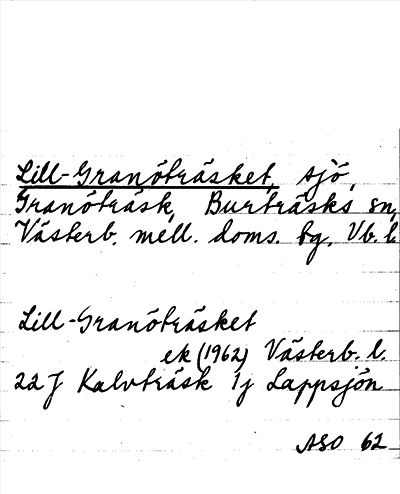 Lill-Granöträsket, sjö,
Granöträsk, Burträsks sn,
Västerb. mell. doms. tg, Vb. l
Lill-Granöträsket
ek (1962) Västerb. l.
22 J Kalvträsk 1j Lappsjön
ASO 62